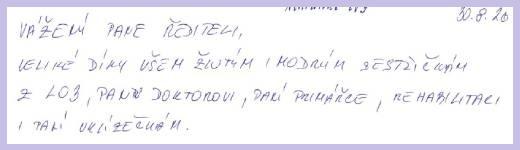 30.8.20
VÁŽENÝ PANE ŘEDITELI,
VELIKÉ DÍKY VŠEM ŽLUTÝM I MODRÝM SESTŘIČKÁM
Z LO3, PANU DOKTOROVI, PANÍ PRIMÁŘCE, REHABILITACI
I PANÍ UKLÍZEČKÁM.